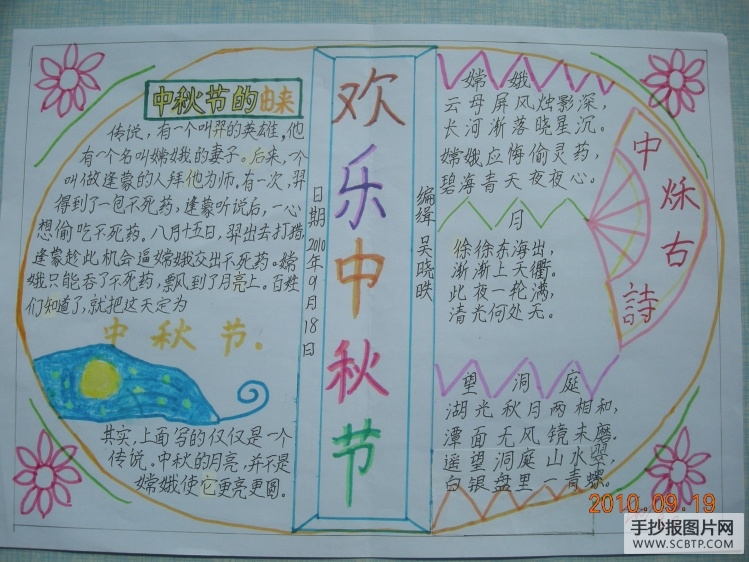 中秋节的由来
传说，有一个叫羿的英雄，他
有一个名叫嫦娥的妻子。后来，一个
叫做逢蒙的人拜他为师。有一次，羿
得到了一包不死药，逢蒙听说后，一心
想偷吃不死药。八月十五日，羿出去打猎，
逢蒙趁此机会逼嫦娥交出不死药。嫦
娥只能吞了不死药，飘风到了月亮上。百姓
们知道了，就把这天定为
中秋节。
其实，上面写的仅仅是一个
传说。中秋的月亮，并不是
嫦娥使它更亮更圆。
日期2010年9月18日
欢乐中秋节
编缉 吴晓昳
嫦娥
云母屏风烛影深，
长河渐落晓星沉。
嫦娥应悔偷灵药，
碧海青天夜夜心。
月
徐徐东海出，
渐渐上天衢。
此夜一轮满，
清光何处无。
望洞庭
湖光秋月两相和，
潭面无风镜未磨。
遥望洞庭山水翠，
白银盘里一青螺。
中烁古詩
2010.09.19
手抄报图片网
WWW.SCBTP.COM